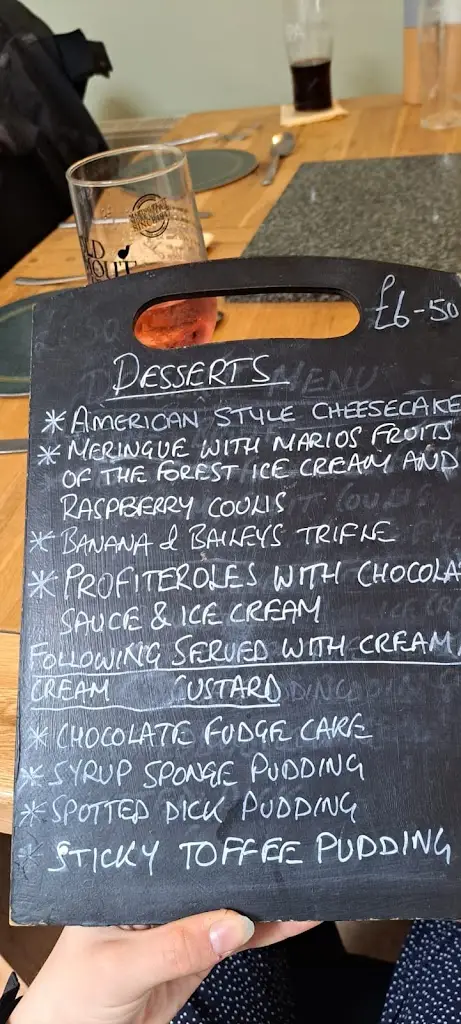 £6-50
DESSERTS
* AMERICAN STYLE CHEESECAKE
* MERINGUE WITH MARIOS FRUITS
OF THE FOREST ICE CREAM AND
RASPBERRY COULIS
* BANANA & BAILEYS TRIFLE
* PROFITEROLES WITH CHOCOLA
SAUCE & ICE CREAM
FOLLOWING SERVED WITH CREAM,
CREAM CUSTARD
* CHOCOLATE FUDGE CAKE
* SYRUP SPONGE PUDDING
* SPOTTED DICK PUDDING
* STICKY TOFFEE PUDDING